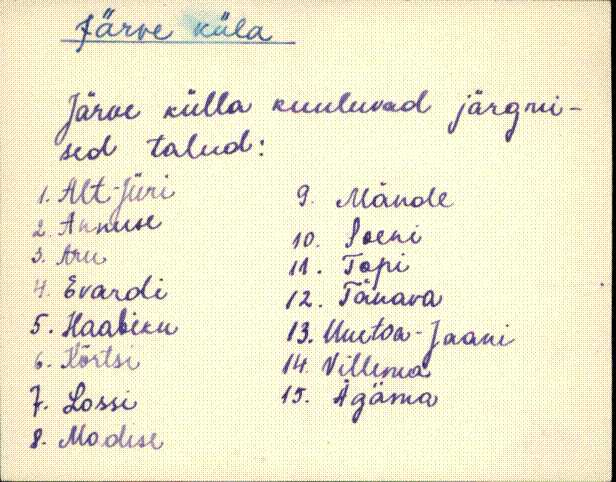 Järve küla
Järve külla kuuluvad järgmi-
sed talud:
1. Alt-Jüri
2. Annuse
3. Aru
4. Evardi
5. Haabiku
6. Kõrtsi
7. Lossi
8. Madise
9. Mände
10. Soeni
11. Topi
12. Tänava
13. Uuetoa-Jaani
14. Villema
15. Ägäma